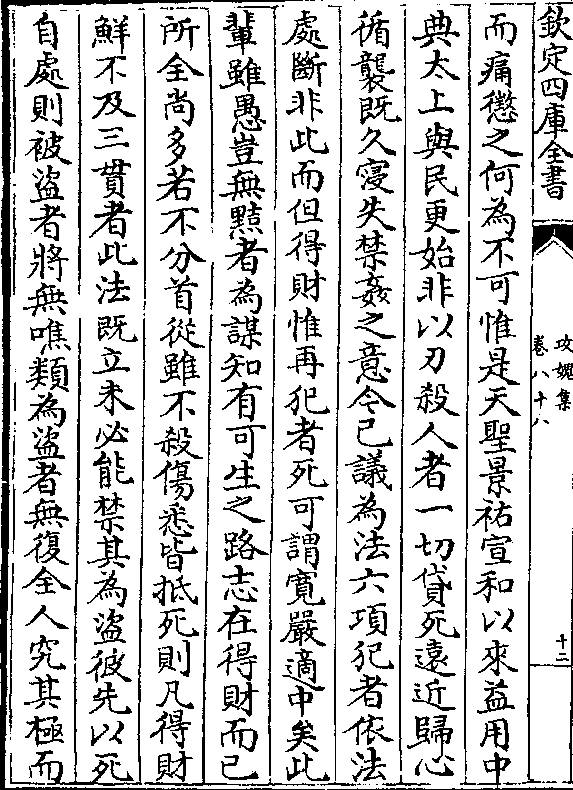 欽定四庫全書
攻媿集
卷八十八
十三
而痛懲之何為不可惟是天聖景祐宣和以來益用中
典太上與民更始非以刃殺人者一切貸死遠近歸心
循襲既久寖失禁姦之意令已議為法六項犯者依法
處斷非此而但得財惟再犯者死可謂寛嚴適中矣此
輩雖愚豈無黠者為謀知有可生之路志在得財而已
所全尚多若不分首從雖不殺傷悉皆抵死則凡得財
鮮不及三貫者此法既立未必能禁其為盜彼先以死
自處則被盜者將無噍類為盜者無復全人究其極而